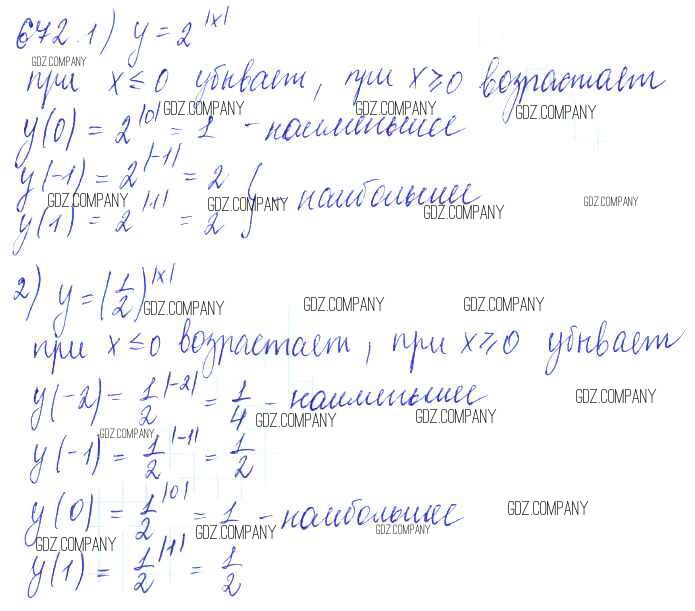 672.1) y = 2^|x|
GDZ.COMPANY
при x ≤ 0 убывает, при x ⩾ 0 возрастает
GDZ.COMPANY GDZ.COMPANY GDZ.COMPANY
y(0) = 2^|0| = 1 - наименьшее
y(-1) = 2^|-1| = 2
GDZ.COMPANY GDZ.COMPANY } - наибольшее GDZ.COMPANY GDZ.COMPANY
y(1) = 2^|1| = 2
2) y = (1/2)^|x|
GDZ.COMPANY GDZ.COMPANY GDZ.COMPANY
при x ≤ 0 возрастает, при x ⩾ 0 убывает
y(-2) = 1/2^|-2| = 1/4 - наименьшее
GDZ.COMPANY GDZ.COMPANY GDZ.COMPANY
GDZ.COMPANY
y(-1) = 1/2^|-1| = 1/2
y(0) = 1/2^|0| = 1 - наибольшее
GDZ.COMPANY
GDZ.COMPANY GDZ.COMPANY GDZ.COMPANY
y(1) = 1/2^|1| = 1/2